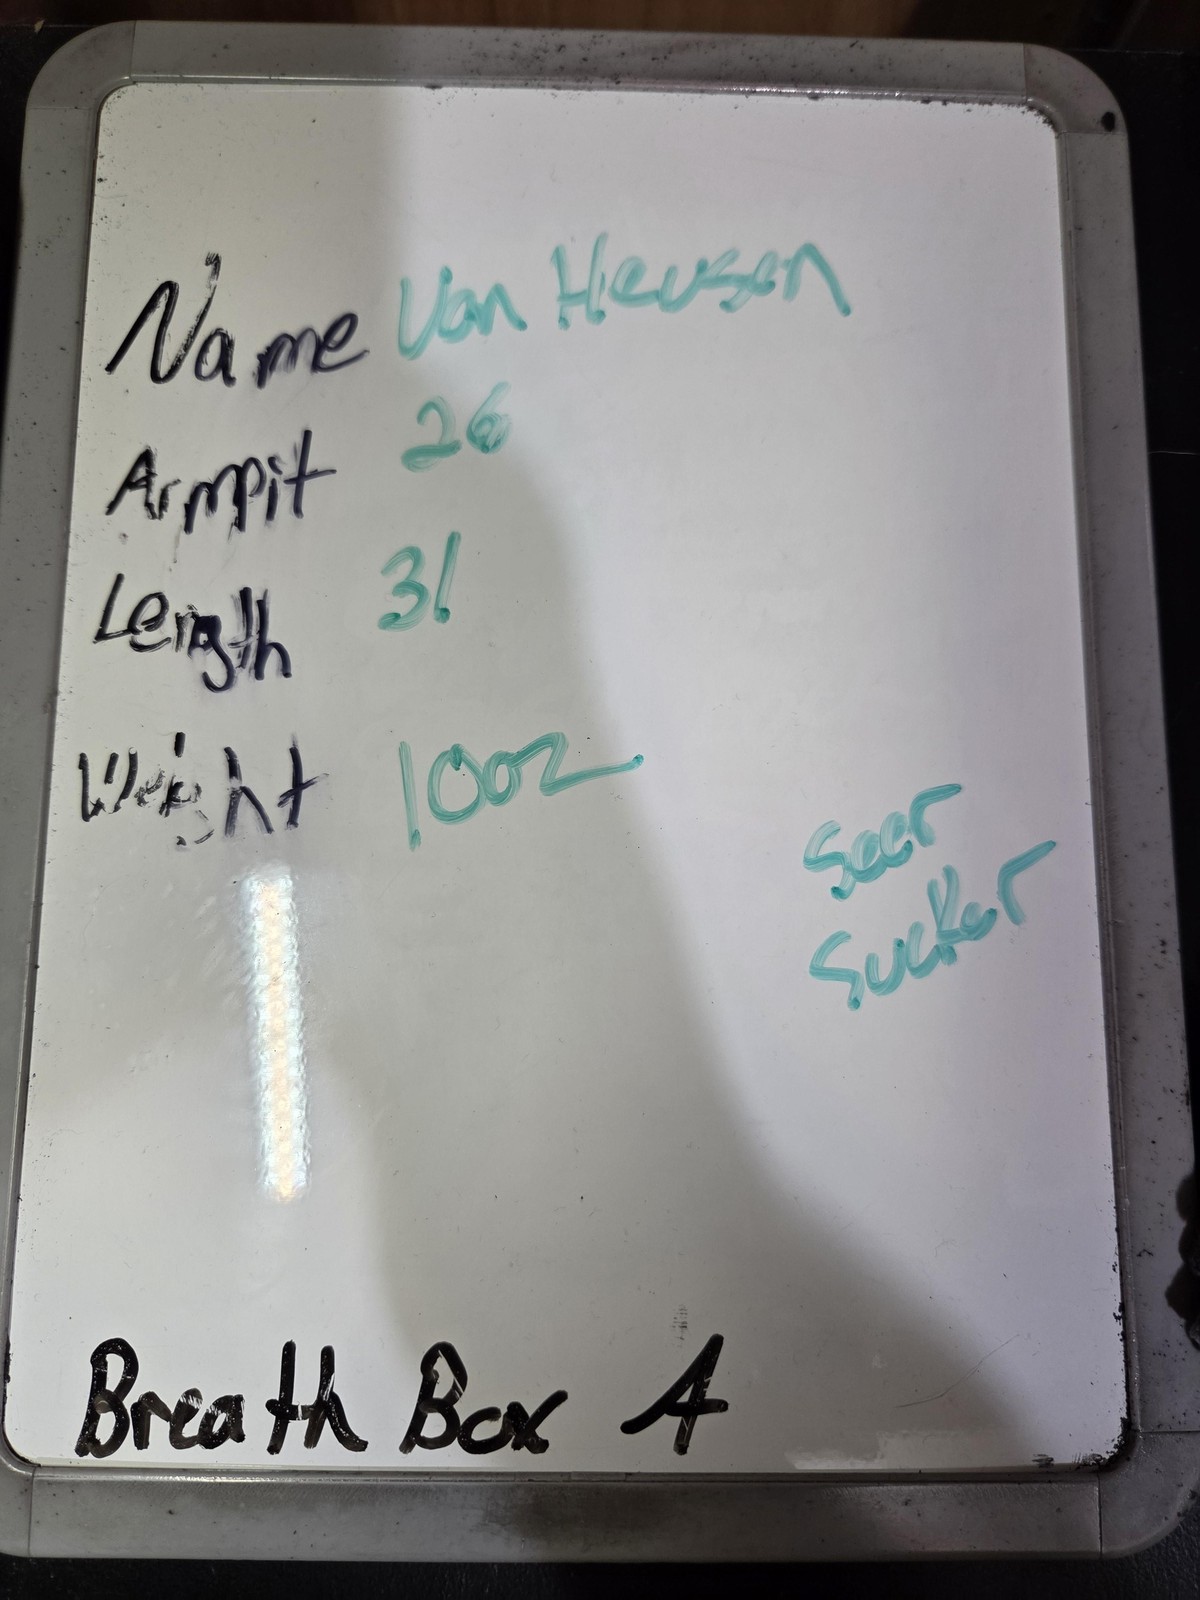 Name Van Heusen
Armpit 26
Length 31
Weight 10oz
Seer
Sucker
Breath Box A